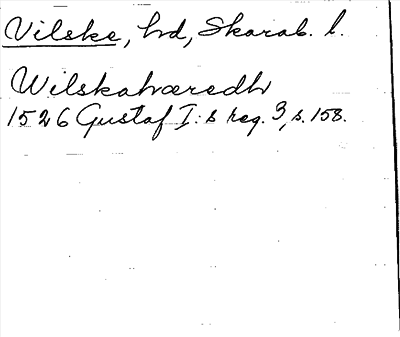 Vilske, hd, Skarab. l.
Wilskahæredh
1526 Gustaf I:s reg. 3, s. 158.